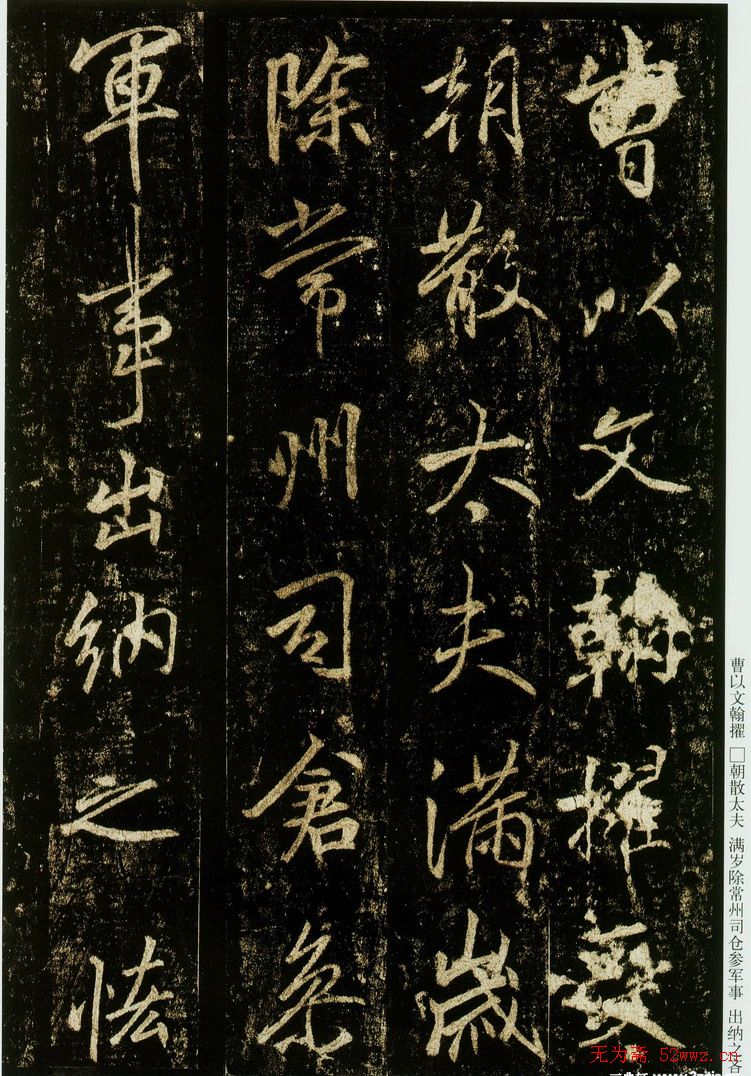 曹以文翰擢
朝散太夫滿歲
除常州司倉叅
軍事出納之
曹以文翰擢 □朝散太夫 满岁除常州司仓参军事 出纳之吝
无为斋 52wwz.cn